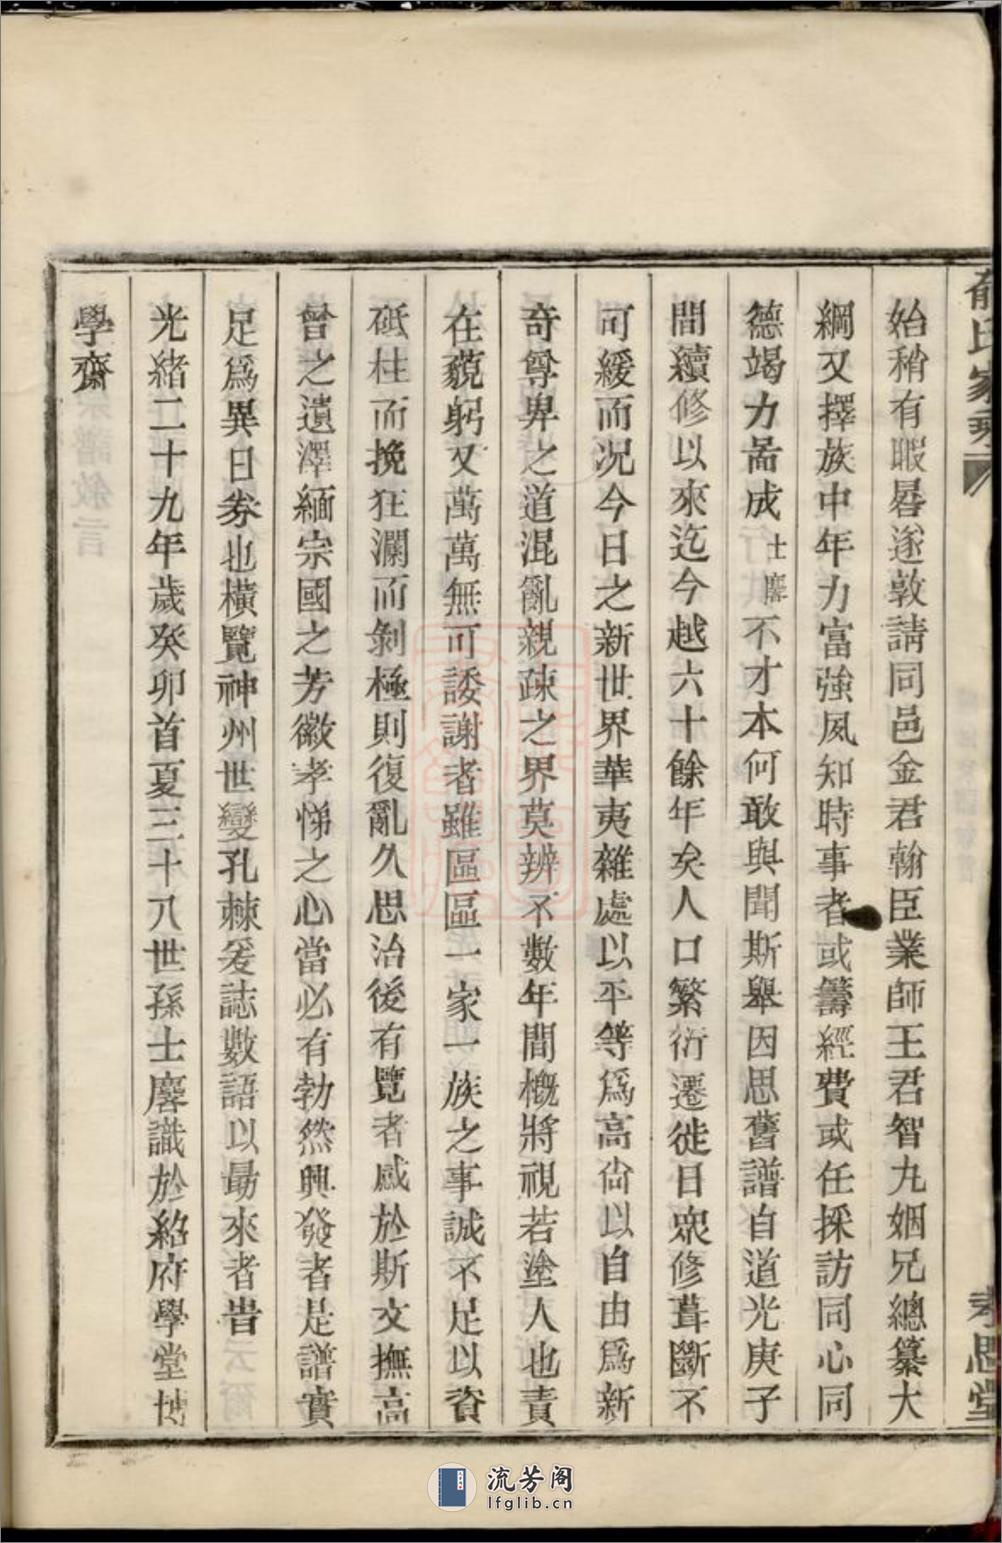 俞氏家乘
孝思堂
始稍有暇晷遂敦請同邑金君翰臣業師王君智九姻兄總纂大
綱又擇族中年力富強夙知時事者或籌經費或任採訪同心同
德竭力耑成士麐不才本何敢與聞斯舉因思舊譜自道光庚子
間續修以來迄今越六十餘年矣人口繁衍遷徙日眾修葺斷不
可緩而況今日之新世界華夷雜處以平等爲高尙以自由爲新
奇尊卑之道混亂親疎之界莫辨不數年間概將視若塗人也責
在藐躬又萬萬無可諉謝者雖區區一家一族之事誠不足以資
砥柱而挽狂瀾而剝極則復亂久思治後有覽者感於斯文撫高
曾之遺澤緬宗國之芳徽孝悌之心當必有勃然興發者是譜實
足爲異日券也橫覽神州世變孔棘爰誌數語以勗來者旹
光緒二十九年歲癸卯首夏三十八世孫士麐識於紹府學堂博
學齋
流芳阁
lfglib.cn